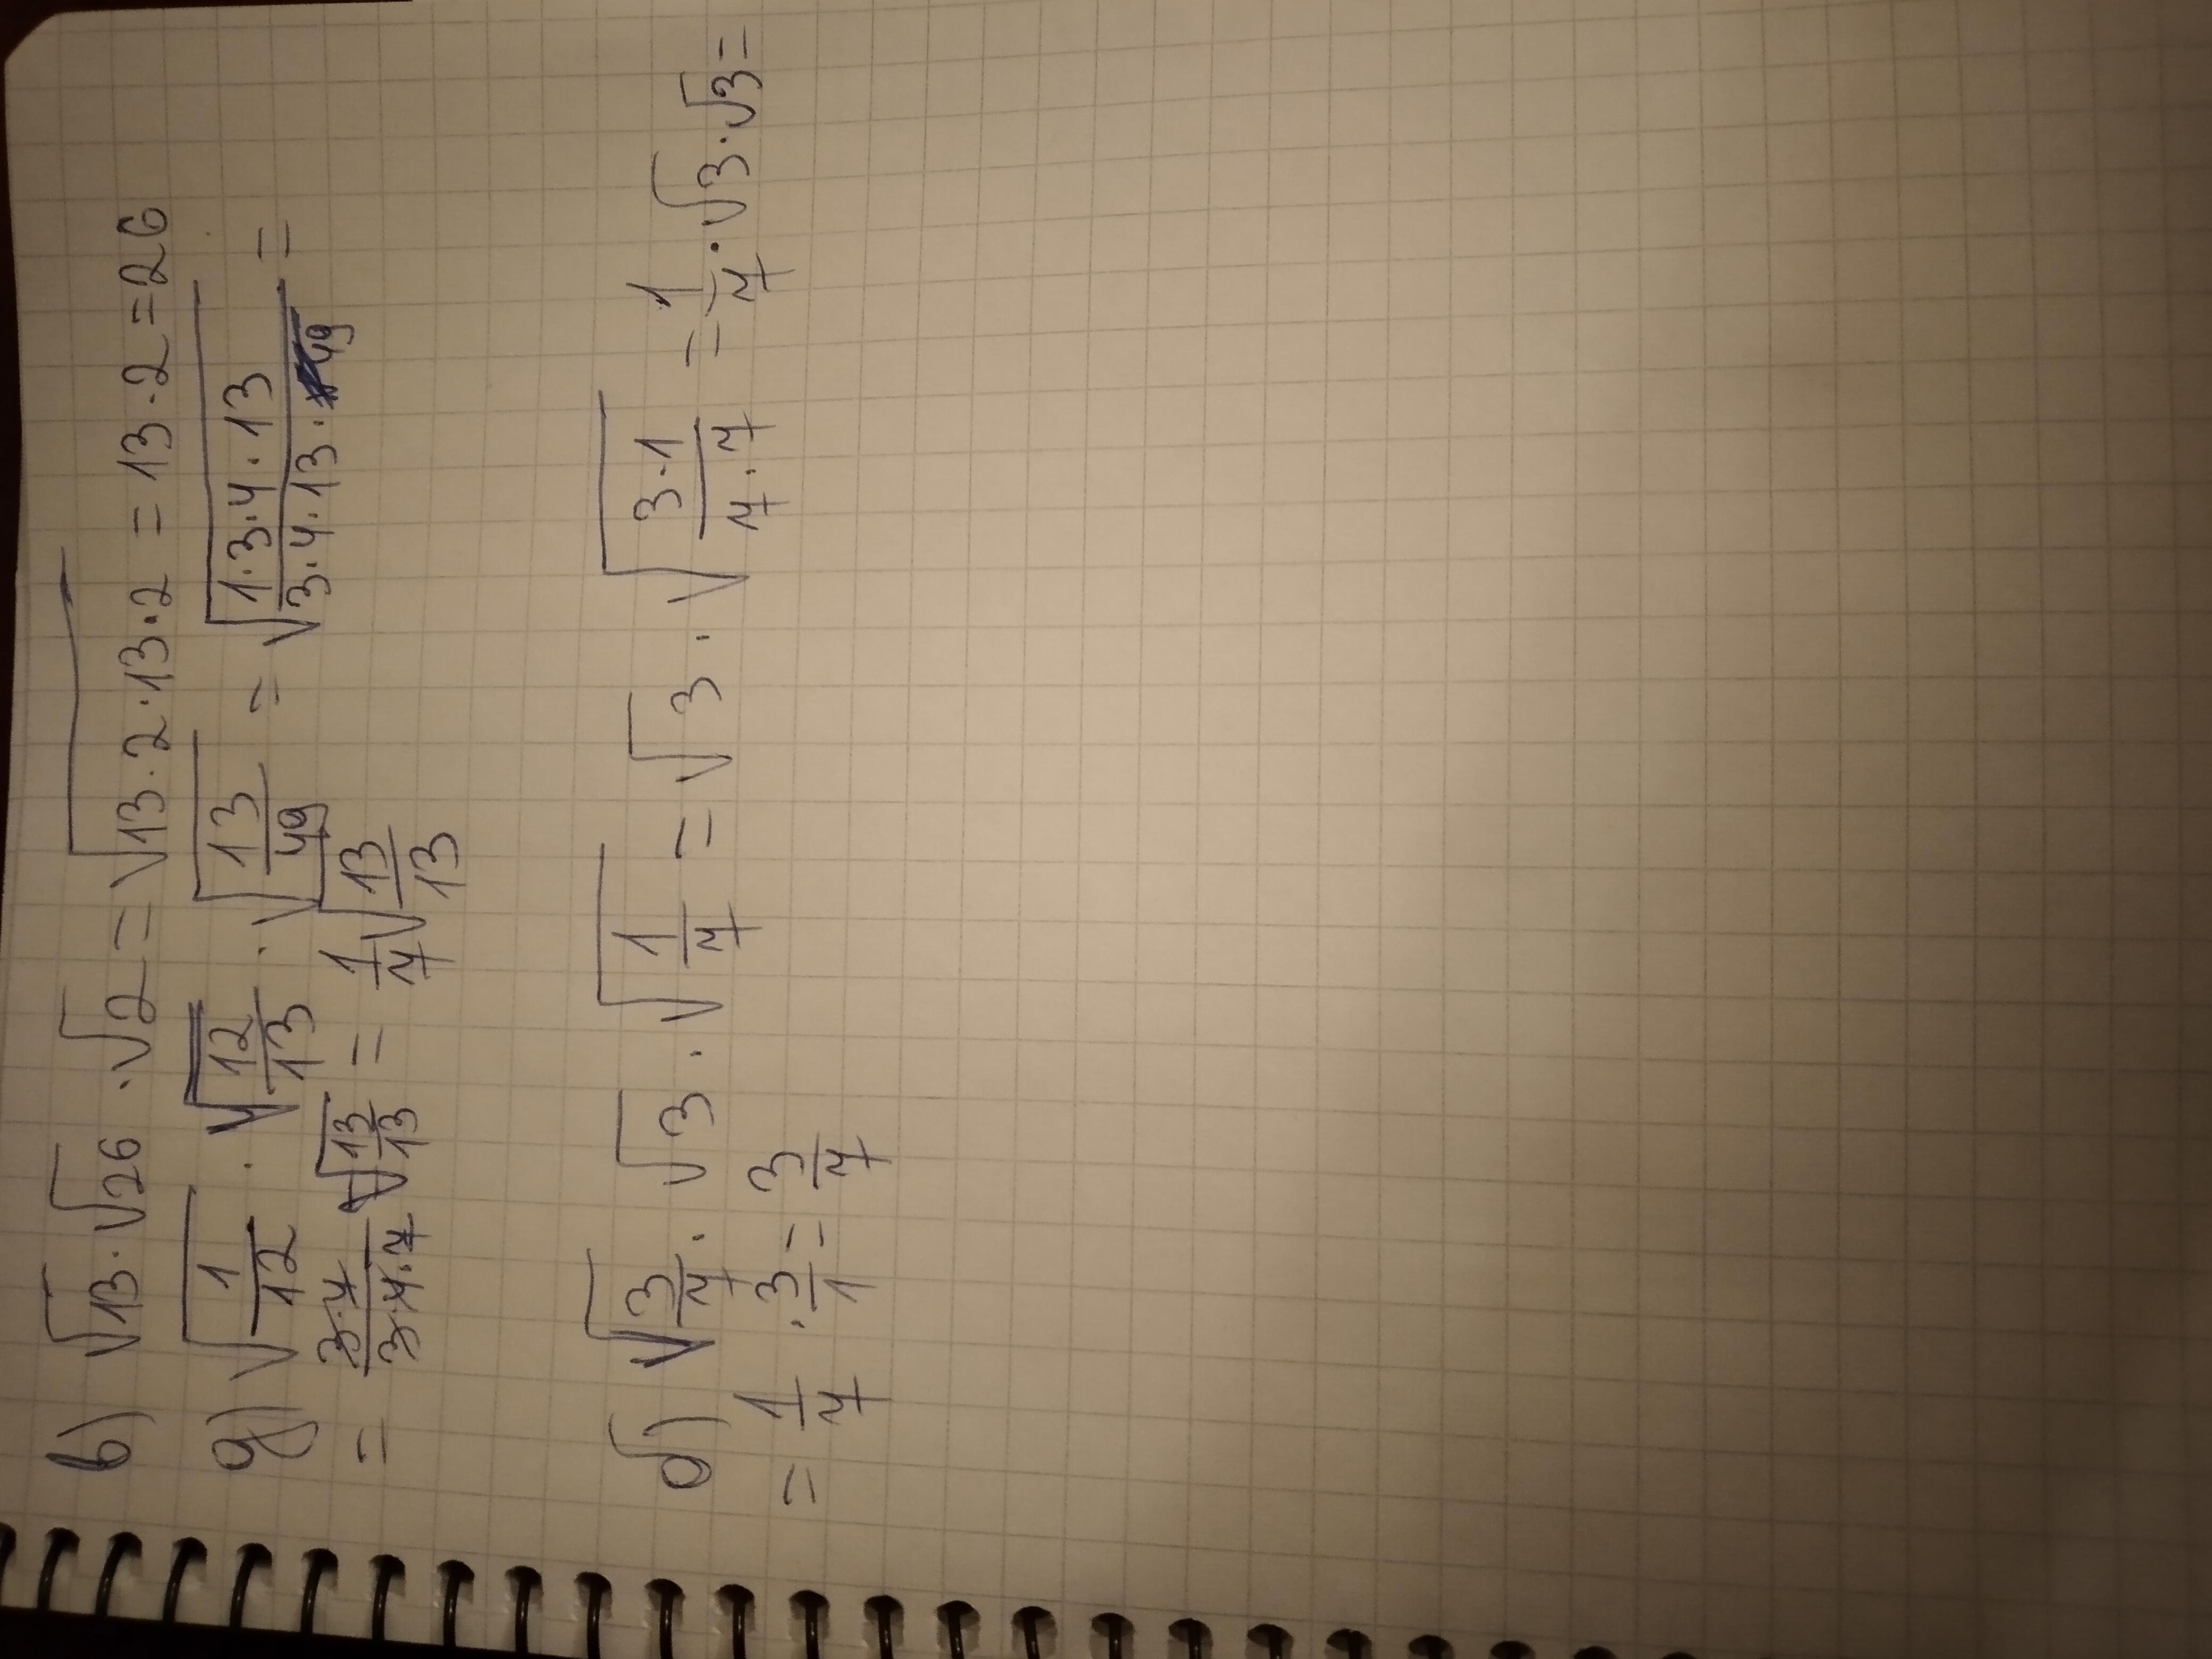 б) √13 · √26 · √2 = √13 · 2 · 13 · 2 = 13 · 2 = 26
д) √1/12 · √12/13 · √13/49 = √(1 · 3 · 4 · 13)/(3 · 4 · 13 · 49) =
= (3 · 4)/(3 · 4 · 7) √13/13 = 1/7 √13/13
б) √3/7 · √3 · √1/7 = √3 · √(3 · 1)/(7 · 7) = 1/7 · √3 · √3 =
= 1/7 · 3/1 = 3/7